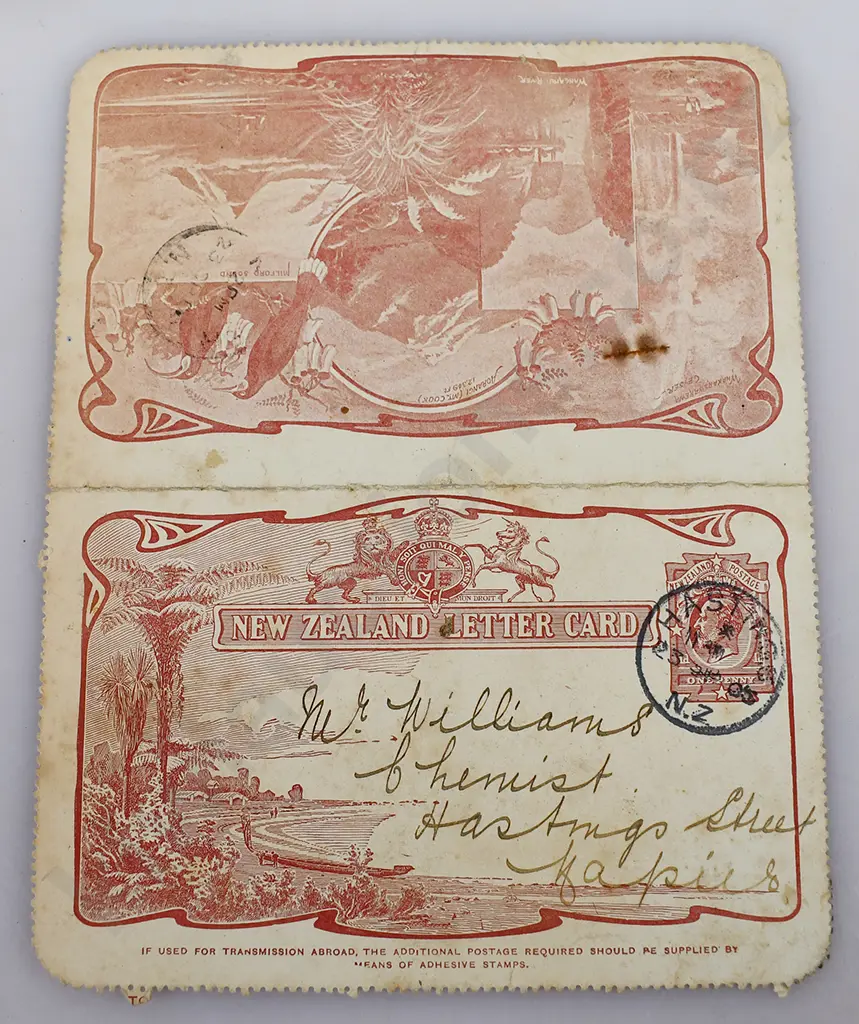 WANGANUI RIVER
MILFORD SOUND
AORANGI (MT. COOK)
12,349 ft.
WHAKAREWAREWA
GEYSER
HONI SOIT QUI MAL Y PENSE
DIEU ET MON DROIT
NEW ZEALAND LETTER CARD
NEW ZEALAND POSTAGE
ONE PENNY
HASTINGS
11 AM
23
05
N.Z
Mr. Williams
Chemist
Hastings Street
Napier
IF USED FOR TRANSMISSION ABROAD, THE ADDITIONAL POSTAGE REQUIRED SHOULD BE SUPPLIED BY
MEANS OF ADHESIVE STAMPS.
TO